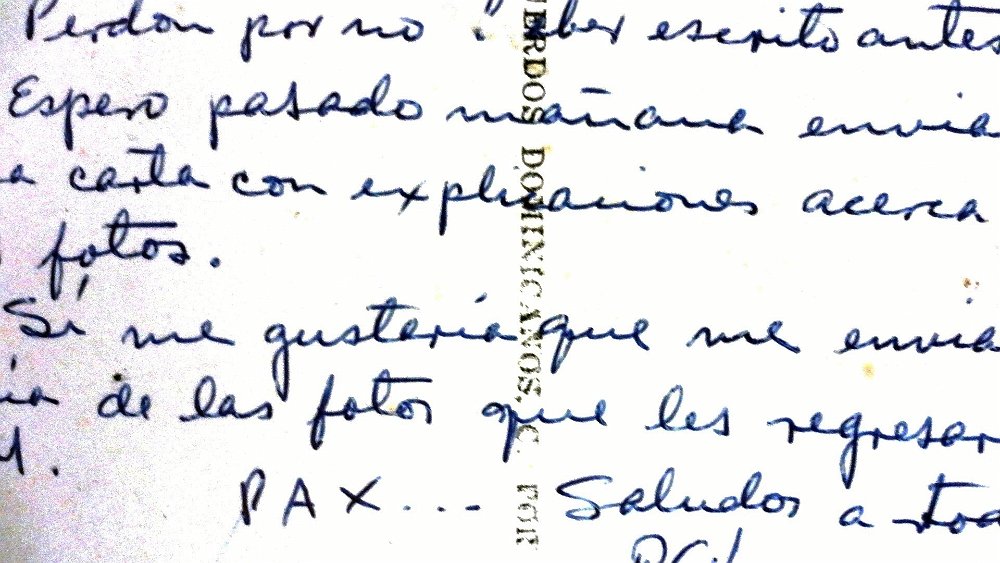 Perdón por no haber escrito antes
Espero pasado mañana envia
a carta con explicaciones acerca
fotos.
Sí me gustaría que me envia
ia de las fotos que les regresar
PAX... Saludos a tod
ERDOS DOMINICANOS, C. POR